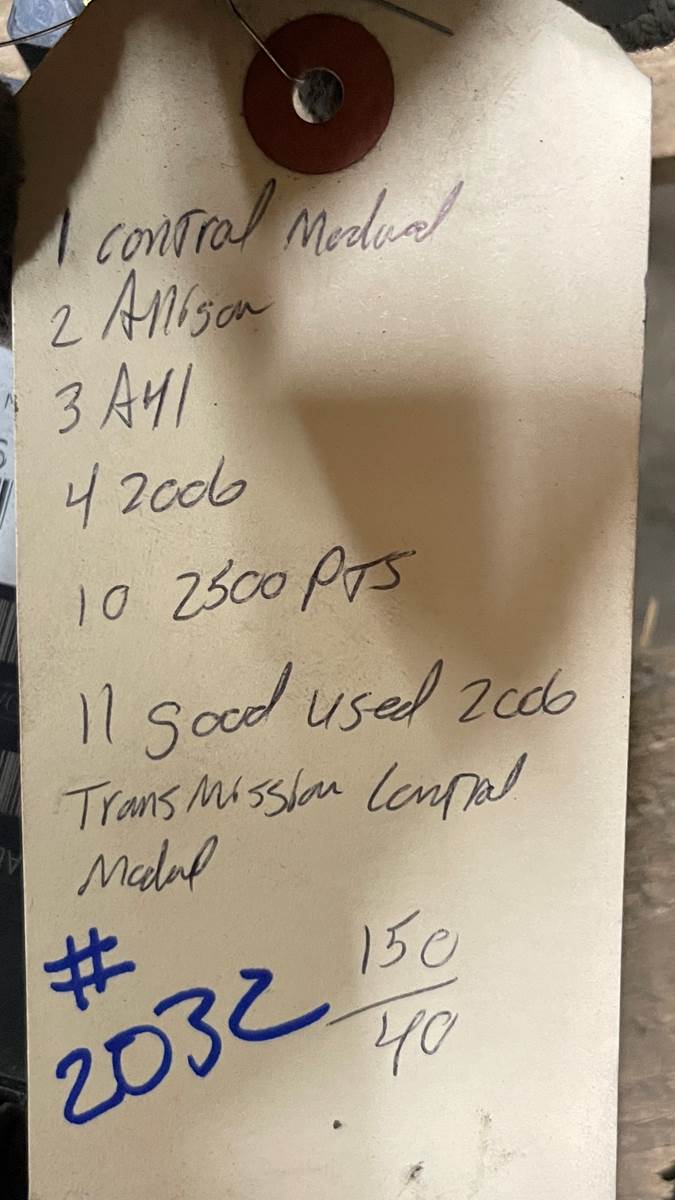 1 control Modual
2 Allison
3 A41
4 2006
10 2500 PTS
11 good used 2006
Transmission Control
Modul
#
2032
150
40